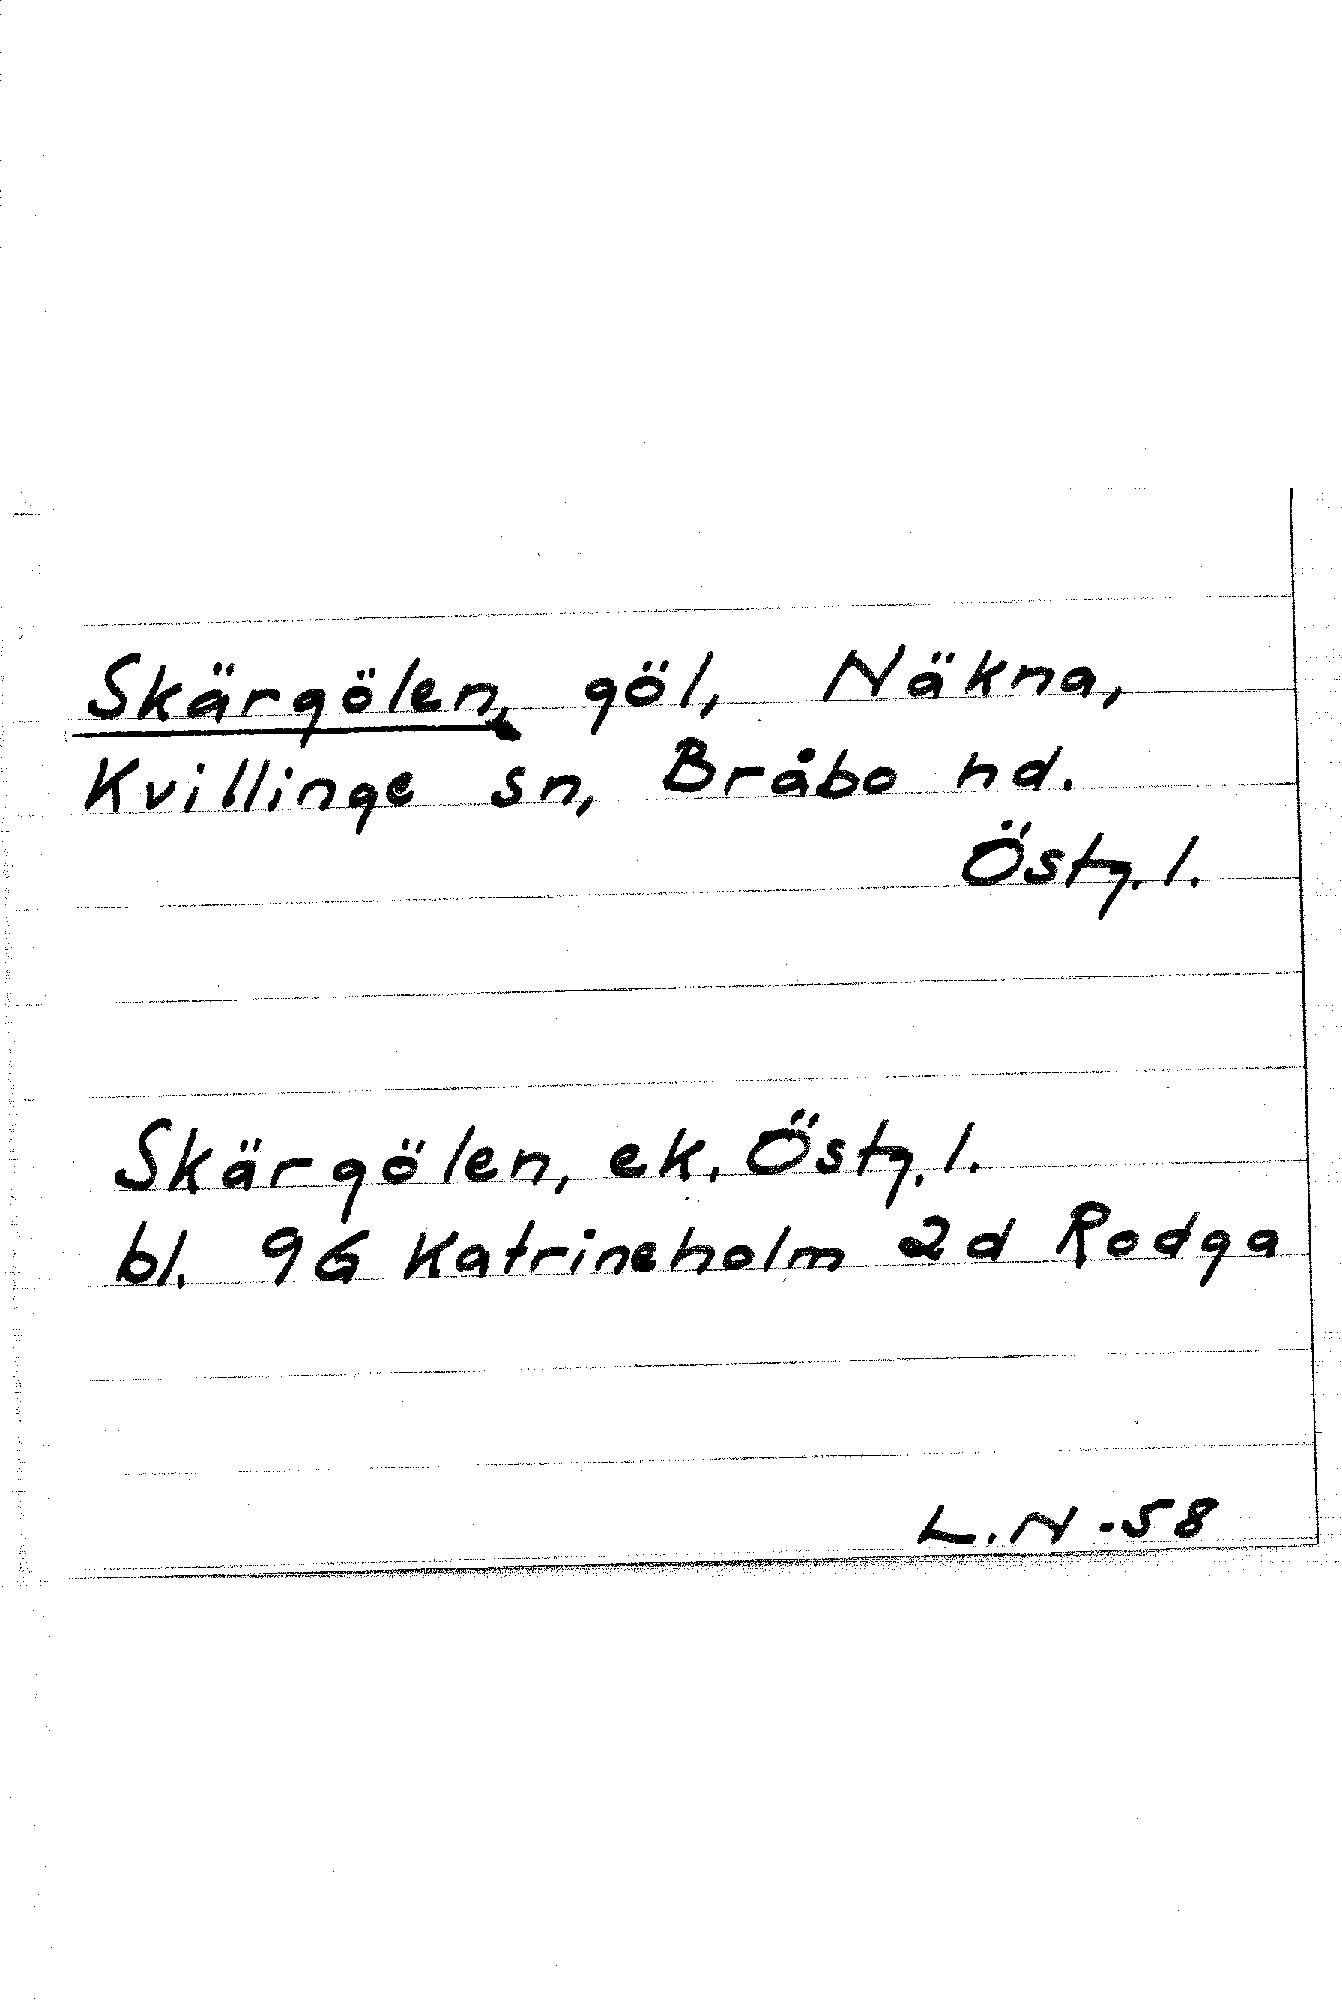 Skärgölen, göl, Näkna,
Kvillinge sn, Bråbo hd.
Östg. l.
Skärgölen, ek. Östg. l.
bl. 9G Katrineholm 2d Rodga
L.N -58